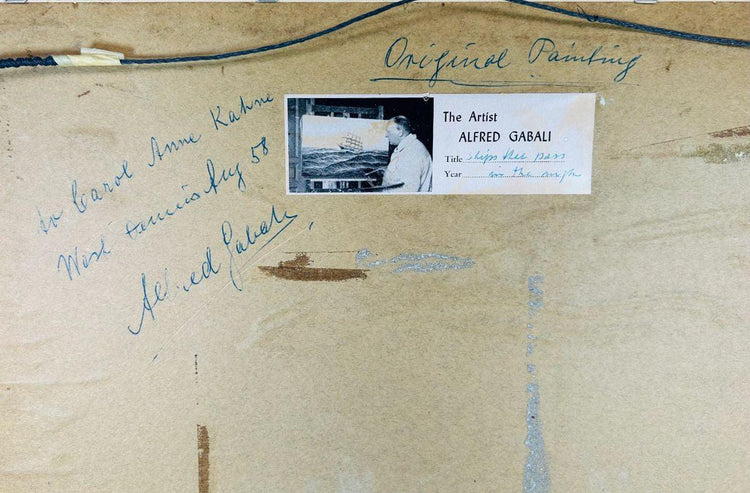 Original Painting
The Artist
ALFRED GABALI
Title ships that pass
Year in the nigh
to Carol Anne Kahne
West Dennis Aug 58
Alfred Gabali